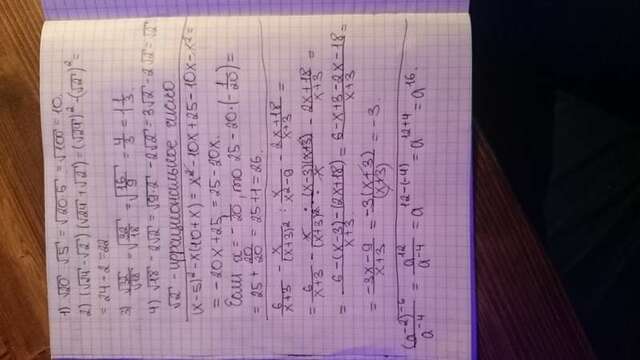 1) √20 · √5 = √20·5 = √100 = 10.
2) (√24 - √2) (√24 + √2) = (√24)² - (√2)² =
= 24 - 2 = 22
3) √32/√18 = √32/18 = √16/9 = 4/3 = 1 1/3.
4) √18 - 2√2 = √9·2 - 2√2 = 3√2 - 2√2 = √2
√2 - иррациональное число
(x-5)² - x(10+x) = x² - 10x + 25 - 10x - x² =
= -20x + 25 = 25 - 20x.
Если x = -1/20, то 25 - 20·(-1/20) =
= 25 + 20/20 = 25 + 1 = 26.
6/x+3 - x/(x+3)² : x/x²-9 - 2x+18/x+3 =
= 6/x+3 - x · (x-3)(x+3)/(x+3)² · x - 2x+18/x+3 =
= 6-(x-3)-(2x+18)/x+3 = 6-x+3-2x-18/x+3 =
= -3x-9/x+3 = -3(x+3)/(x+3) = -3.
(a⁻²)⁻⁶/a⁻⁴ = a¹²/a⁻⁴ = a¹²⁻⁽⁻⁴⁾ = a¹²⁺⁴ = a¹⁶.